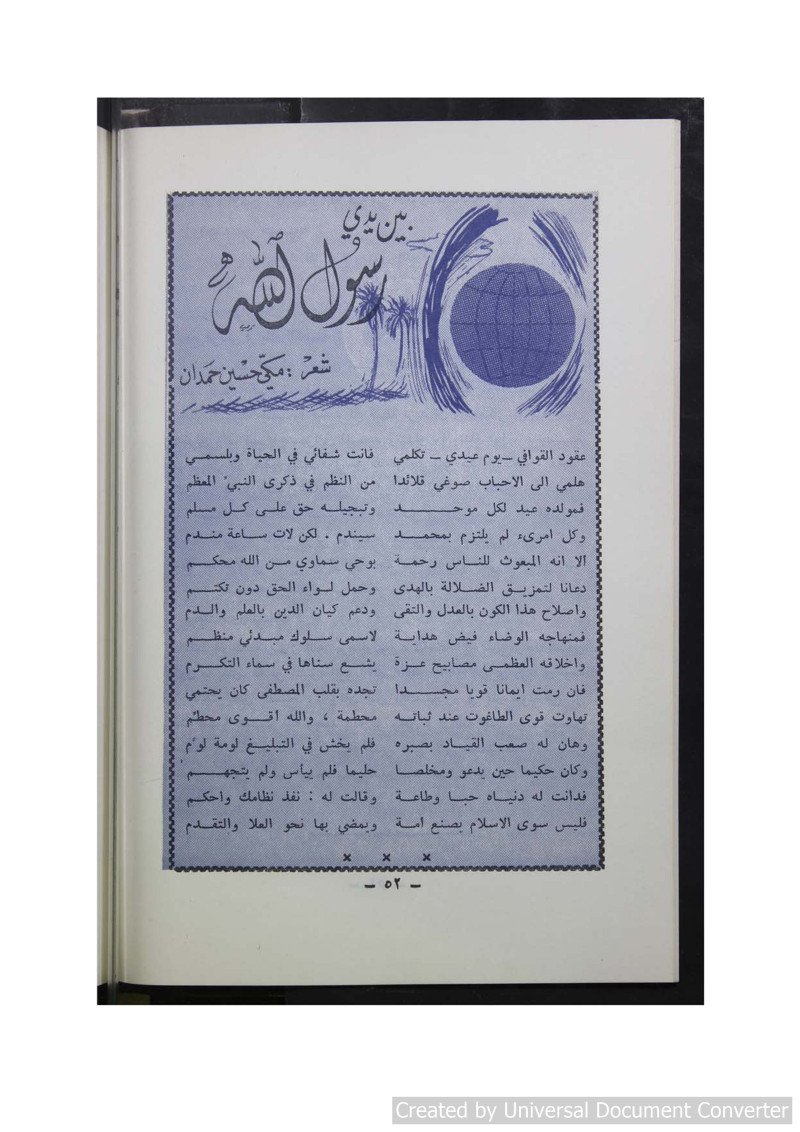 بين يدي
رسول الله ﷺ
شعر : مكي حسين حمدان
عقود القوافي ــ يوم عيدي ــ تكلمي فانت شفائي في الحياة وبلسمي
هلمي الى الاحباب صوغي قلائدا من النظم في ذكرى النبي المعظم
فمولده عيد لكل موحد وتبجيله حق على كل مسلم
وكل امرىء لم يلتزم بمحمد سيندم . لكن لات ساعة مندم
ألا انه المبعوث للناس رحمة بوحي سماوي من الله محكم
دعانا لتمزيق الضلالة بالهدى وحمل لواء الحق دون تكتم
واصلاح هذا الكون بالعدل والتقى ودعم كيان الدين بالعلم والدم
فمنهاجه الوضاء فيض هداية لاسمى سلوك مبدئي منظم
واخلاقه العظمى مصابيح عزة يشع سناها في سماء التكرم
فان رمت ايمانا قويا مجددا تجده بقلب المصطفى كان يحتمي
تهاوت قوى الطاغوت عند ثباته محطمة ، والله أقوى محطم
وهان له صعب القياد بصبره فلم يخش في التبليغ لومة لوّم
وكان حكيما حين يدعو ومخلصا حليما فلم ييأس ولم يتجهم
فدانت له دنياه حبا وطاعة وقالت له : نفذ نظامك واحكم
فليس سوى الاسلام يصنع أمة ويمضي بها نحو العلا والتقدم
× × ×
ــ ٥٢ ــ
Created by Universal Document Converter